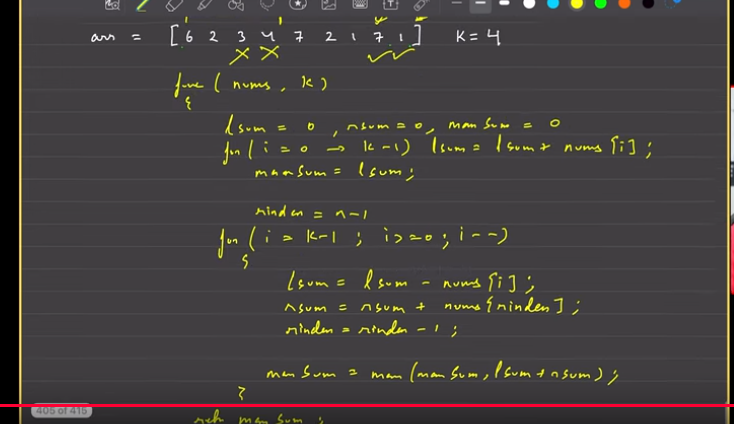 arr = [ 6 2 3 4 7 2 1 7 1 ] K = 4
func ( nums , k )
{
lsum = 0 , rsum = 0, maxSum = 0
for ( i = 0 → k-1 ) lsum = lsum + nums [i] ;
maxSum = lsum ;
rindex = n-1
for ( i = k-1 ; i >= 0 ; i-- )
{
lsum = lsum - nums [i] ;
rsum = rsum + nums [rindex] ;
rindex = rindex - 1 ;
maxSum = max (maxSum, lsum + rsum) ;
}
405 of 415
retn maxSum ;